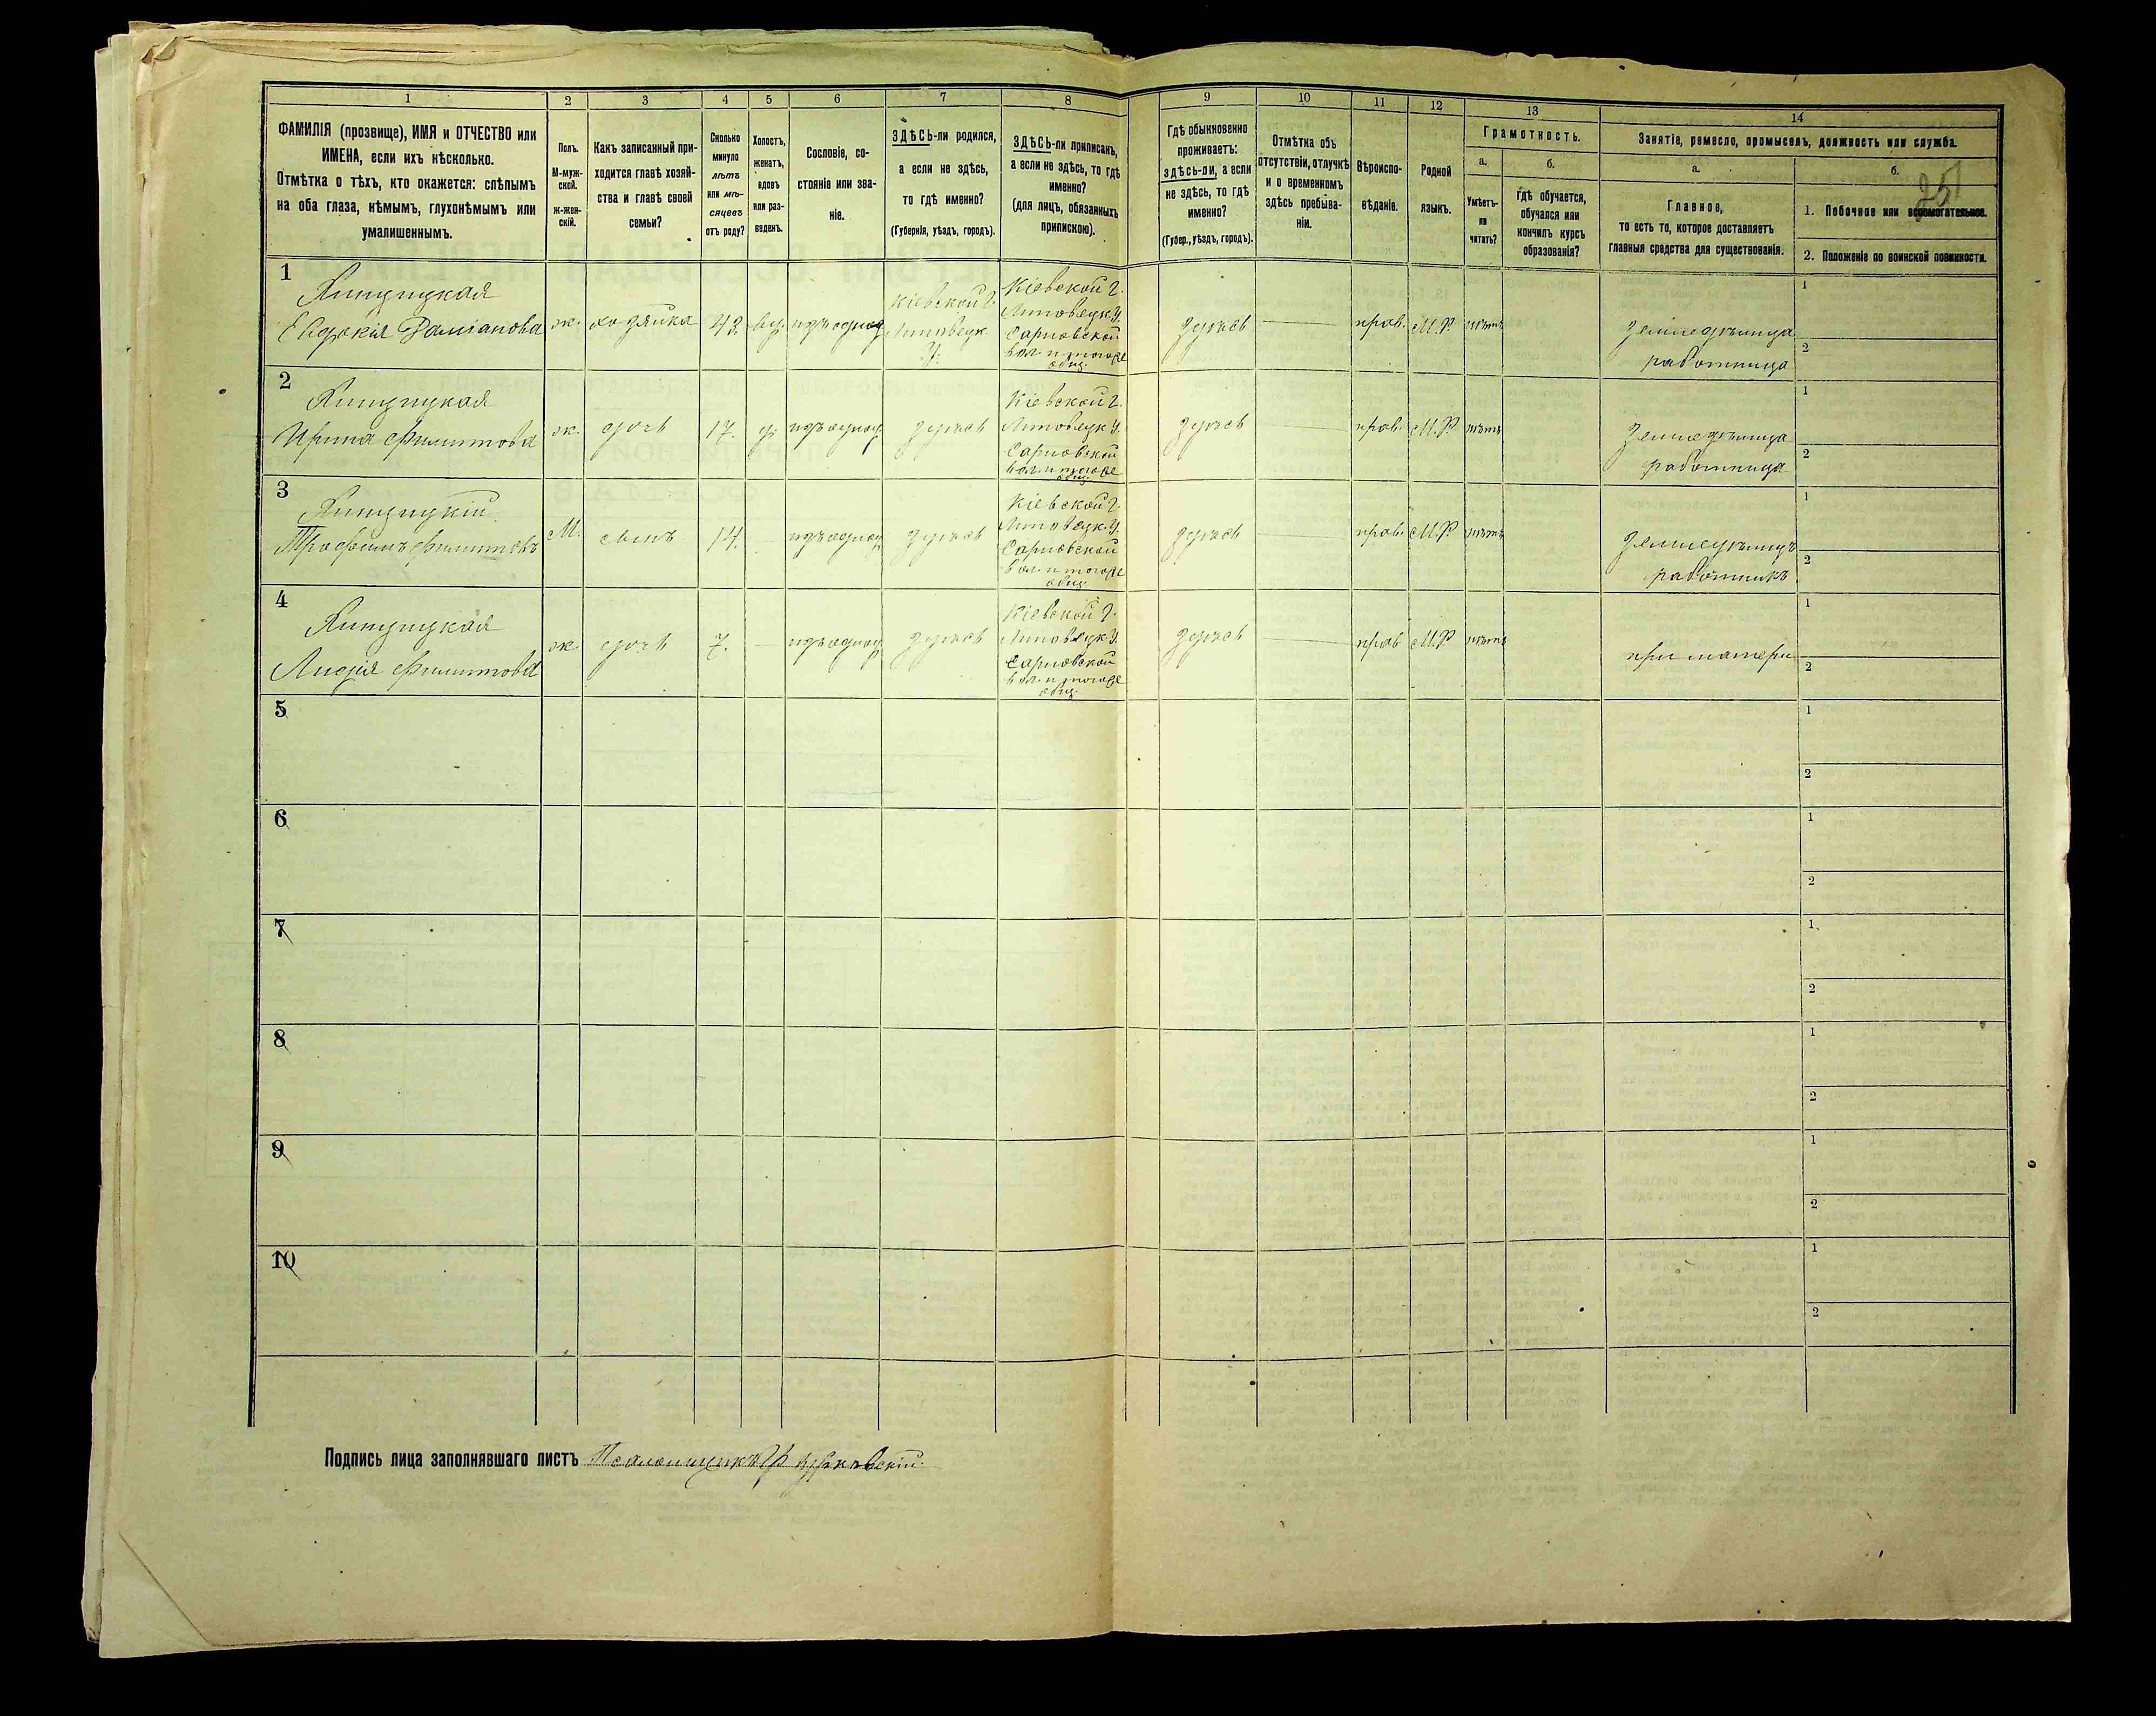 1 2 3 4 5 6 7 8 9 10 11 12 13 14
ФАМИЛІЯ (прозвище), ИМЯ и ОТЧЕСТВО или
ИМЕНА, если ихъ нѣсколько.
Отмѣтка о тѣхъ, кто окажется: слѣпымъ
на оба глаза, нѣмымъ, глухонѣмымъ или
умалишеннымъ.
Полъ.
М-муж-
ской.
Ж-жен-
скій.
Какъ записанный при-
ходится главѣ хозяй-
ства и главѣ своей
семьи?
Сколько
минуло
лѣтъ
или мѣ-
сяцевъ
отъ роду?
Холостъ,
женатъ,
вдовъ
или раз-
веденъ.
Сословіе, со-
стояніе или зва-
ніе.
ЗДѢСЬ-ли родился,
а если не здѣсь,
то гдѣ именно?
(Губернія, уѣздъ, городъ).
ЗДѢСЬ-ли приписанъ,
а если не здѣсь, то гдѣ
именно?
(для лицъ, обязанныхъ
припискою).
Гдѣ обыкновенно
проживаетъ:
здѣсь-ли, а если
не здѣсь, то гдѣ
именно?
(Губер., уѣздъ, городъ).
Отмѣтка объ
отсутствіи, отлучкѣ
и о временномъ
здѣсь пребыва-
ніи.
Вѣроиспо-
вѣданіе.
Родной
языкъ.
Грамотность.
а.
Умѣетъ-
ли
читать?
б.
Гдѣ обучается,
обучался или
кончилъ курсъ
образованія?
Занятіе, ремесло, промыселъ, должность или служба.
а.
Главное,
то есть то, которое доставляетъ
главныя средства для существованія.
б.
25
1. Побочное или вспомогательное.
2. Положеніе по воинской повинности.
1
Евдокія Даміанова
ж.
хозяйка
43.
вд.
Кіевской г.
Липовецк.
у.
Кіевской г.
Липовецк. у.
вол. и того же
общ.
здѣсь
прав.
М.Р
нѣтъ
земледѣлица
работница
1
2
2
Ирина Филиппова
ж.
дочь
17.
д.
здѣсь
Кіевской г.
Липовецк. у.
вол. и того же
общ.
здѣсь
прав.
М.Р
нѣтъ
земледѣлица
работница
1
2
3
Трофимъ Филипповъ
М.
сынъ
14.
здѣсь
Кіевской г.
Липовецк. у.
вол. и того же
общ.
здѣсь
прав.
М.Р
нѣтъ
земледѣлицъ
работникъ
1
2
4
Лидія Филиппова
ж.
дочь
7.
здѣсь
Кіевской г.
Липовецк. у.
вол. и того же
общ.
здѣсь
прав
М.Р
нѣтъ
при матери
1
2
5
1
2
6
1
2
7
1
2
8
1
2
9
1
2
10
1
2
Подпись лица заполнявшаго листъ